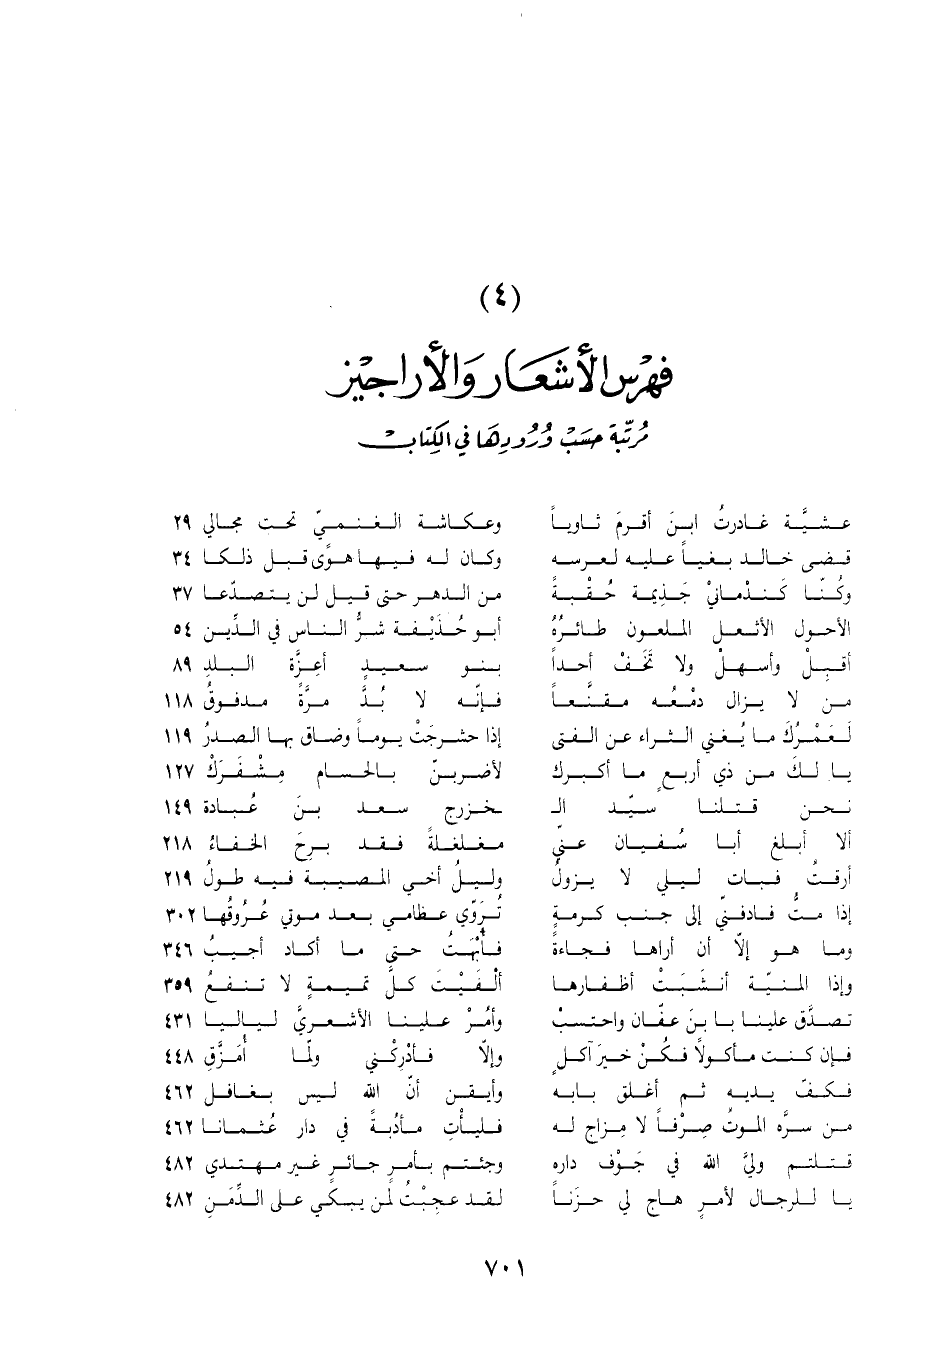 (٤)
فهرس الأشعار والأراجيز
مرتبة حسب ورودها في الكتاب
عشيّة غادرت ابن أقرم ثاوياً وعكاشة الغنميّ تحت مجالي ٢٩
قضى خالد بغياً عليه لعرسه وكان له فيها هوًى قبل ذلكا ٣٤
وكُنّا كَنَدْمانَيْ جَذِيمَةَ حِقْبةً من الدهر حتى قيل لن يتصدّعا ٣٧
الأحول الأثعل الملعون طائرُهُ أبو حُذَيْفة شرُّ الناس في الدِّين ٥٤
أقبِلْ وأسهِلْ ولا تَخَفْ أحداً بنو سعيدٍ أعِزّةُ البلدِ ٨٩
من لا يزال دمعُه مقنّعاً فإنّه لا بُدَّ مرّةً مدفوقُ ١١٨
لَعَمْرُكَ ما يُغني الثراء عن الفتى إذا حشرجَتْ يوماً وضاق بها الصدرُ ١١٩
يا لكَ من ذي أربعٍ ما أكبرك لأضربنّ بالحسام مِشْفَرَكْ ١٢٧
نحن قتلنا سيّد الـ ـخزرج سعد بن عُبادة ١٤٩
ألا أبلغ أبا سُفيان عنّي مغلغلةً فقد برحَ الخفاءُ ٢١٨
أرقتُ فبات ليلي لا يزولُ وليلُ أخي المصيبة فيه طولُ ٢١٩
إذا متّ فادفنّي إلى جنب كرمةٍ تُرَوّي عظامي بعد موتي عُروقُها ٣٠٢
وما هو إلّا أن أراها فجاءةً فأبْهَتُ حتى ما أكاد أجيبُ ٣٤٦
وإذا المنيّة أنشبَتْ أظفارها ألفَيْتَ كلَّ تميمةٍ لا تنفعُ ٣٥٩
تصدّق علينا يا بنَ عفّان واحتسبْ وأمّرْ علينا الأشعريَّ لياليا ٤٣١
فإن كنت مأكولًا فكن خيرَ آكلٍ وإلّا فأدركني ولمّا أُمَزَّقِ ٤٤٨
فكفّ يديه ثم أغلق بابه وأيقن أنّ الله ليس بغافل ٤٦٢
من سرّه الموتُ صِرْفاً لا مِزاج له فليأتِ مأدبةً في دار عُثمانا ٤٦٢
قتلتم وليَّ الله في جَوْف داره وجئتم بأمرٍ جائرٍ غير مهتدي ٤٨٢
يا للرجال لأمرٍ هاج لي حزناً لقد عجبْتُ لمن يبكي على الدِّمَنِ ٤٨٢
٧٠١